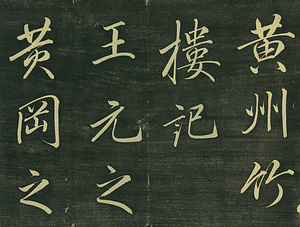 黄州竹
樓記
王元之
黄岡之